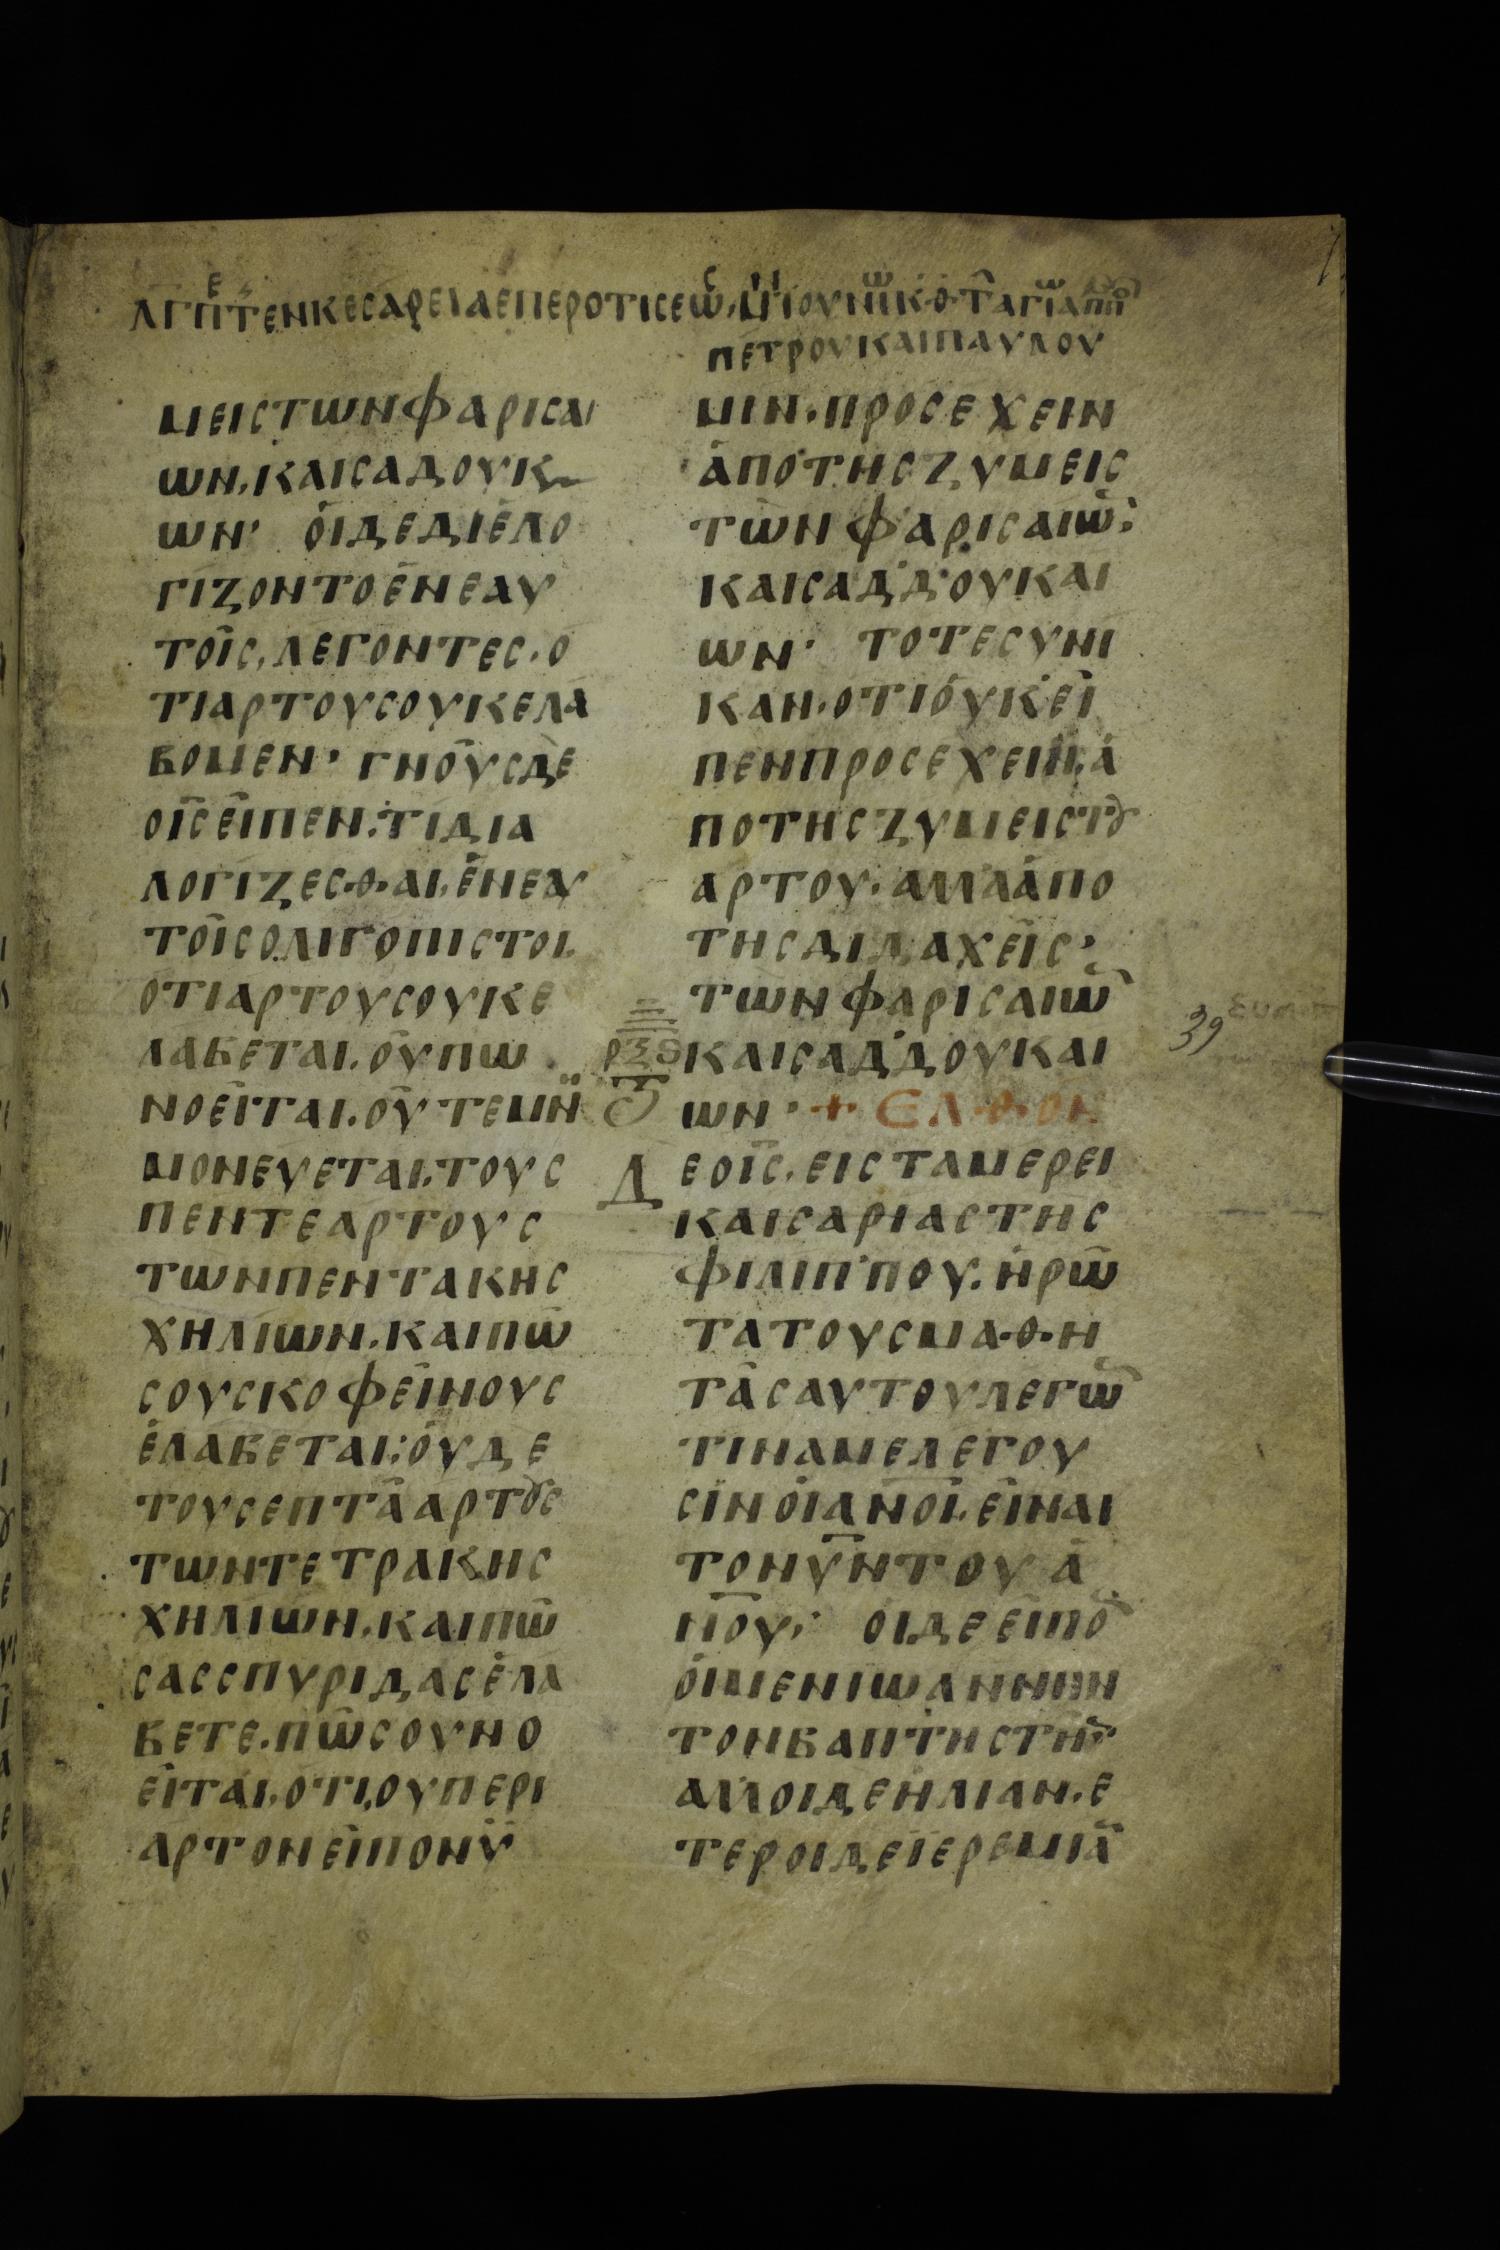 ΛΓ ΠΕΤΕΝΚΕСΑΡΕΙΑΕΠΕΡΟΤΙСΕѠС ΜΗ ΙΟΥΝΙѠ ΚΘ ΤѠ ΑΓΙѠ ΑΠΠ
ΠΕΤΡΟΥΚΑΙΠΑΥΛΟΥ
ΜΕΙСΤѠΝΦΑΡΙСΑΙ
ѠΝ.ΚΑΙСΑΔΟΥΚ
ѠΝ· ΟΙΔΕΔΙΕΛΟ
ΓΙΖΟΝΤΟΕΝΕΑΥ
ΤΟΙС.ΛΕΓΟΝΤΕС.Ο
ΤΙΑΡΤΟΥСΟΥΚΕΛΑ
ΒΟΜΕΝ· ΓΝΟΥСΔΕ
ΟΙ̅С̅ΕΙΠΕΝ.ΤΙΔΙΑ
ΛΟΓΙΖΕСΘΑΙ.ΕΝΕΑΥ
ΤΟΙСΟΛΙΓΟΠΙСΤΟΙ.
ΟΤΙΑΡΤΟΥСΟΥΚΕ
ΛΑΒΕΤΑΙ.ΟΥΠѠ
ΝΟΕΙΤΑΙ.ΟΥΤΕΜΝΗ
ΜΟΝΕΥΕΤΑΙ.ΤΟΥС
ΠΕΝΤΕΑΡΤΟΥС
ΤѠΝΠΕΝΤΑΚΗС
ΧΗΛΙѠΝ.ΚΑΙΠѠ
СΟΥСΚΟΦΕΙΝΟΥС
ΕΛΑΒΕΤΑΙ;ΟΥΔΕ
ΤΟΥСΕΠΤΑΑΡΤȢС
ΤѠΝΤΕΤΡΑΚΗС
ΧΗΛΙѠΝ.ΚΑΙΠѠ
СΑССΠΥΡΙΔΑСΕΛΑ
ΒΕΤΕ.ΠѠСΟΥΝΟ
ΕΙΤΑΙ.ΟΤΙ.ΟΥΠΕΡΙ
ΑΡΤΟΝΕΙΠΟΝΥ
ΜΙΝ.ΠΡΟСΕΧΕΙΝ
ΑΠΟΤΗСΖΥΜΕΙС
ΤѠΝΦΑΡΙСΑΙѠ̅:
ΚΑΙСΑΔΔΟΥΚΑΙ
ѠΝ· ΤΟΤΕСΥΝΙ
ΚΑΝ.ΟΤΙΟΥΚΕΙ
ΠΕΝΠΡΟСΕΧΕΙΝ.Α
ΠΟΤΗСΖΥΜΕΙСΤȢ
ΑΡΤΟΥ.ΑΛΛΑΑΠΟ
ΤΗСΔΙΔΑΧΕΙС·
ΤѠΝΦΑΡΙСΑΙѠ̅
ΡΞϚ ΚΑΙСΑΔΔΟΥΚΑΙ
ѠΝ· + ΕΛΘΟΝ
ΔΕΟΙ̅С̅.ΕΙСΤΑΜΕΡΕΙ
ΚΑΙСΑΡΙΑСΤΗС
ΦΙΛΙΠΠΟΥ.ΗΡѠ̅
ΤΑΤΟΥСΜΑΘΗ
ΤΑСΑΥΤΟΥΛΕΓѠ̅
ΤΙΝΑΜΕΛΕΓΟΥ
СΙΝΟΙΑΝ̅Ο̅Ι̅.ΕΙΝΑΙ
ΤΟΝΥ̅Ν̅ΤΟΥΑ
Ν̅ΟΥ; ΟΙΔΕΕΙΠΟ̅
ΟΙΜΕΝΙѠΑΝΝΗΝ
ΤΟΝΒΑΠΤΗСΤΗ̅·
ΑΛΛΟΙΔΕΗΛΙΑΝ.Ε
ΤΕΡΟΙΔΕΙΕΡΕΜΙΑ̅
39